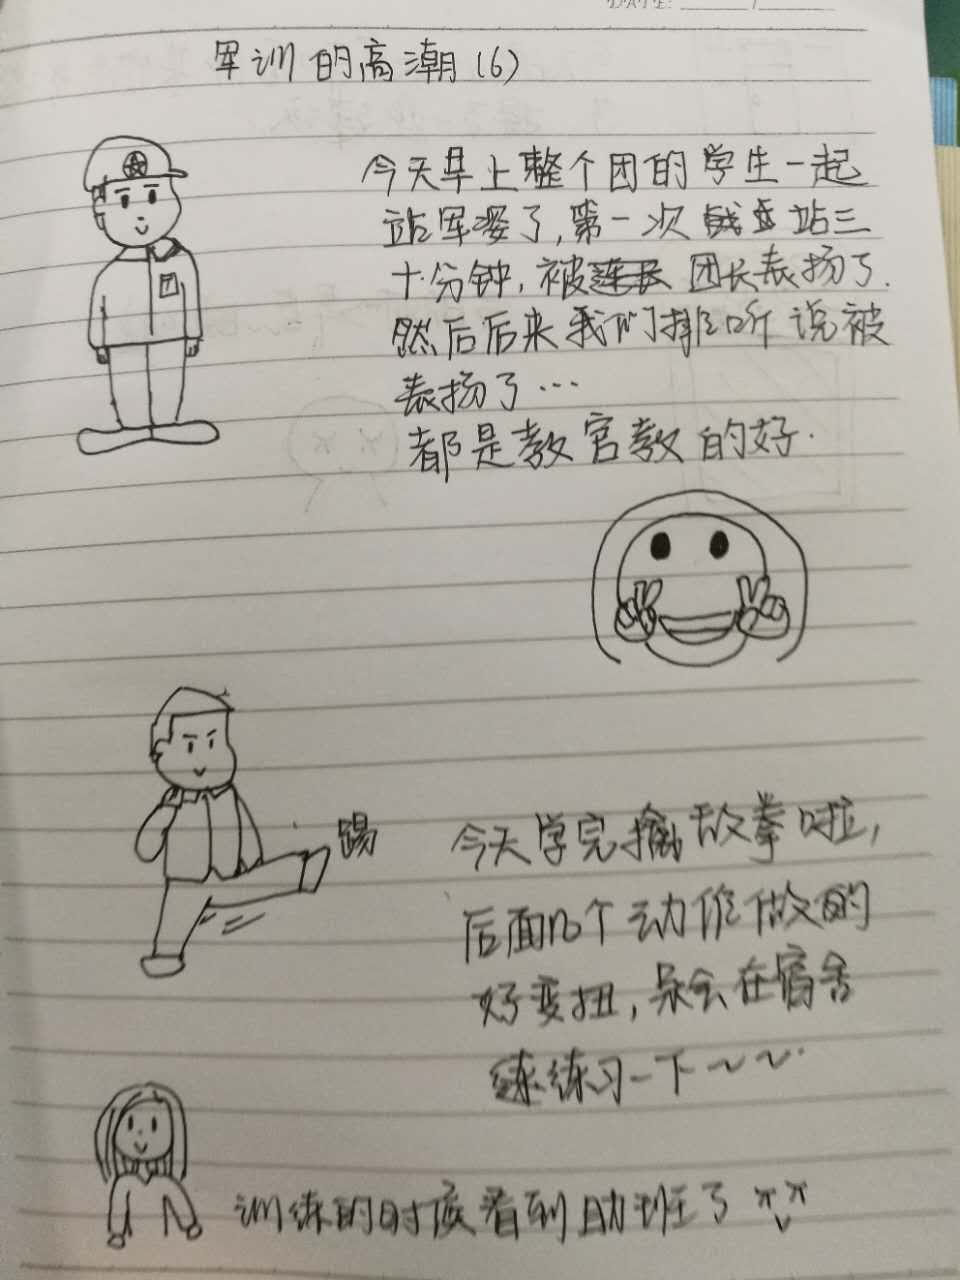 军训的高潮(6)
今天早上整个团的学生一起
站军姿了,第一次 站三
十分钟,被连长 团长表扬了.
然后后来我们排听说被
表扬了…
都是教官教的好.
踢
今天学完擒敌拳啦,
后面几个动作做的
好变扭,呆会在宿舍
练练习一下~~.
训练的时候看到助班了